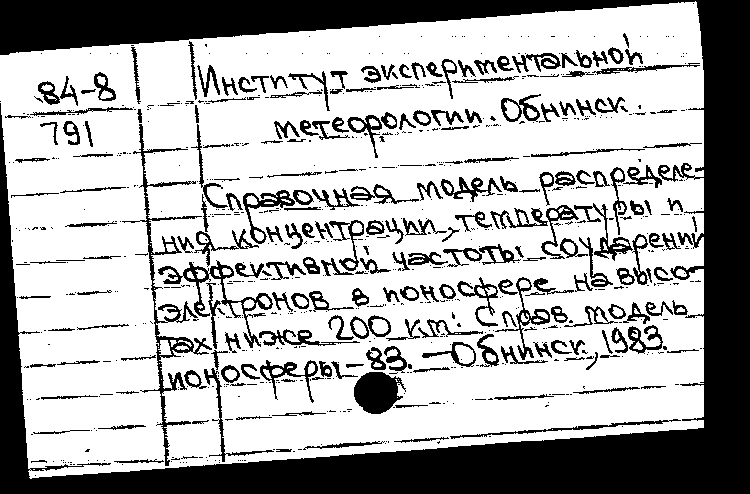 84-8
791
Институт экспериментальной
метеорологии. Обнинск.
Справочная модель распределе-
ния концентрации, температуры и
эффективной частоты соударений
электронов в ионосфере на высо-
тах ниже 200 км: Справ. модель
ионосферы-83. — Обнинск, 1983.